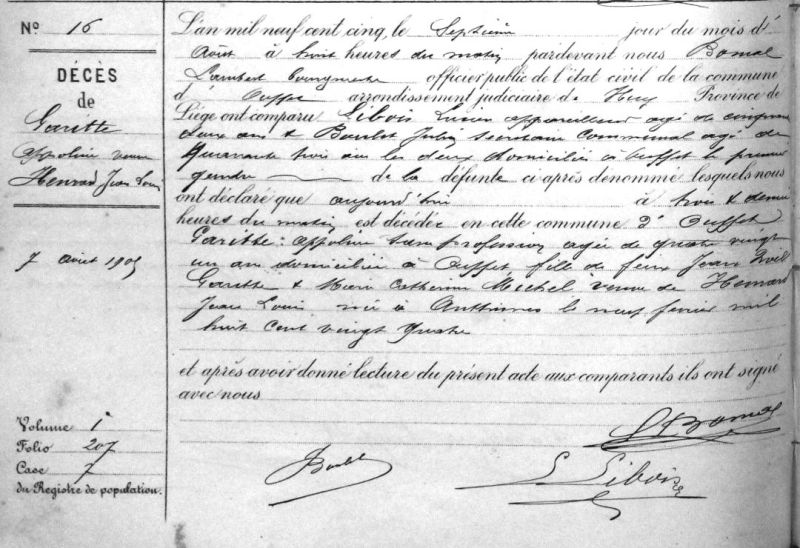 N° 16
DÉCÈS
de
Garitte
Appoline veuve
Henrard Jean Louis
7 août 1905
Volume 1
Folio 207
Case 7
du Registre de population.
L'an mil neuf cent cinq, le Septième jour du mois d'
Août à huit heures du matin pardevant nous Bomal
Lambert bourgmestre officier public de l'état civil de la commune
d' Ouffet arrondissement judiciaire de Huy Province de
Liège ont comparu Libois Lucien appareilleur agé de cinquante
deux ans & Boulet Jules secrétaire communal agé de
quarante trois ans les deux domiciliés à Ouffet le premier
gendre de la défunte ci-après denommé lesquels nous
ont déclaré que aujourd'hui à trois & demie
heures du matin est décédée en cette commune d' Ouffet
Garitte: Appoline sans profession agée de quatre vingt
un an domiciliée à Ouffet fille de feux Jean Noël
Garitte & Marie Catherine Michel veuve de Henrard
Jean Louis née à Anthisnes le neuf février mil
huit cent vingt quatre
et après avoir donné lecture du présent acte aux comparants ils ont signé
avec nous
L Bomal
Boulet
L Libois